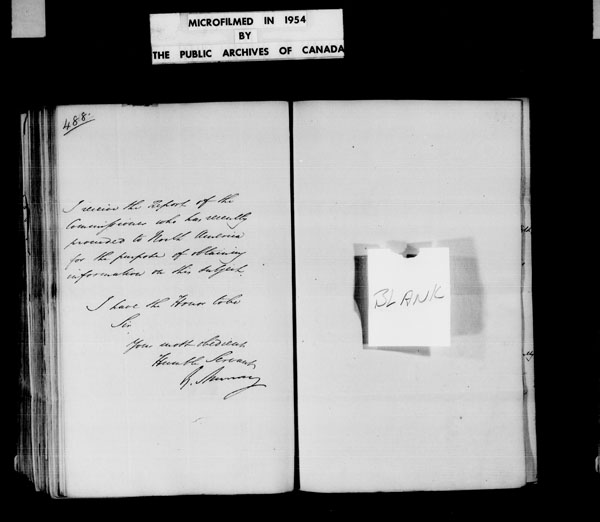 MICROFILMED IN 1954
BY
THE PUBLIC ARCHIVES OF CANADA
488.
I receive the Report of the
Commissioner who has recently
proceeded to North America
for the purpose of obtaining
information on this subject.
I have the Honor to be
Sir
Your most obedient
Humble Servant
G. Murray
BLANK